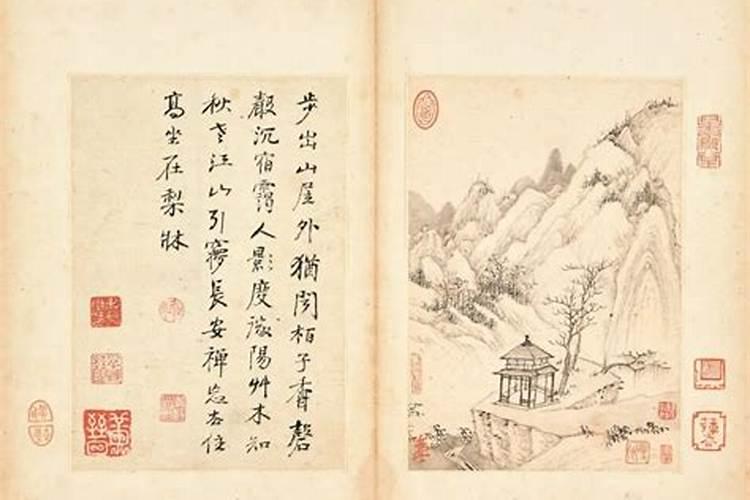 步出山屋外猶聞柏子香磬
聲沉宿靄人影度微陽艸木知
秋老江山引夢長安禪忘去住
高坐在梨牀